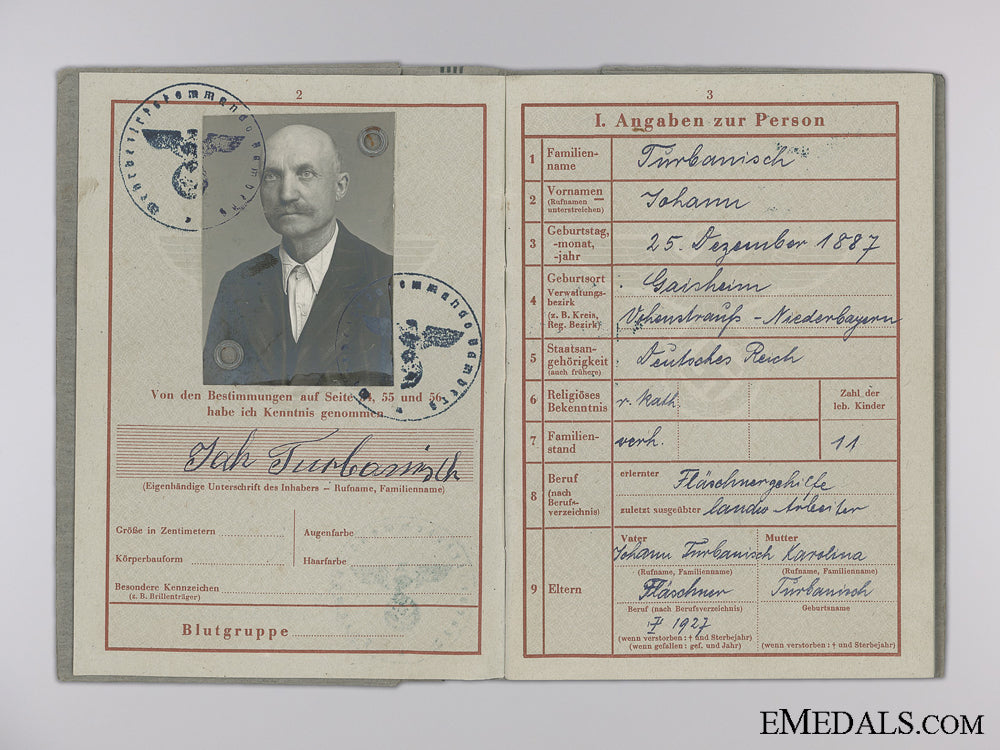 2
Wehrbezirkskommando Bamberg
Wehrbezirkskommando Bamberg
Von den Bestimmungen auf Seite 54, 55 und 56
habe ich Kenntnis genommen
Joh Turbanisch
(Eigenhändige Unterschrift des Inhabers – Rufname, Familienname)
Größe in Zentimetern
Augenfarbe
Körperbauform
Haarfarbe
Besondere Kennzeichen
(z. B. Brillenträger)
Blutgruppe
3
I. Angaben zur Person
1 Familien-
name
Turbanisch
2 Vornamen
(Rufnamen
unterstreichen)
Johann
3 Geburtstag,
-monat,
-jahr
25. Dezember 1887
4 Geburtsort
Verwaltungs-
bezirk
(z. B. Kreis,
Reg. Bezirk)
Gaisheim
Vohenstrauß - Niederbayern
5 Staatsan-
gehörigkeit
(auch frühere)
Deutsches Reich
6 Religiöses
Bekenntnis
r. kath
Zahl der
leb. Kinder
7 Familien-
stand
verh.
11
8 Beruf
(nach
Berufs-
verzeichnis)
erlernter Fläschnergehilfe
zuletzt ausgeübter landw Arbeiter
9 Eltern
Vater
Johann Turbanisch
(Rufname, Familienname)
Fläschner
Beruf (nach Berufsverzeichnis)
† 1927
(wenn verstorben: † und Sterbejahr)
(wenn gefallen: gef. und Jahr)
Mutter
Karolina
(Rufname, Familienname)
Turbanisch
Geburtsname
(wenn verstorben: † und Sterbejahr)
EMEDALS.COM